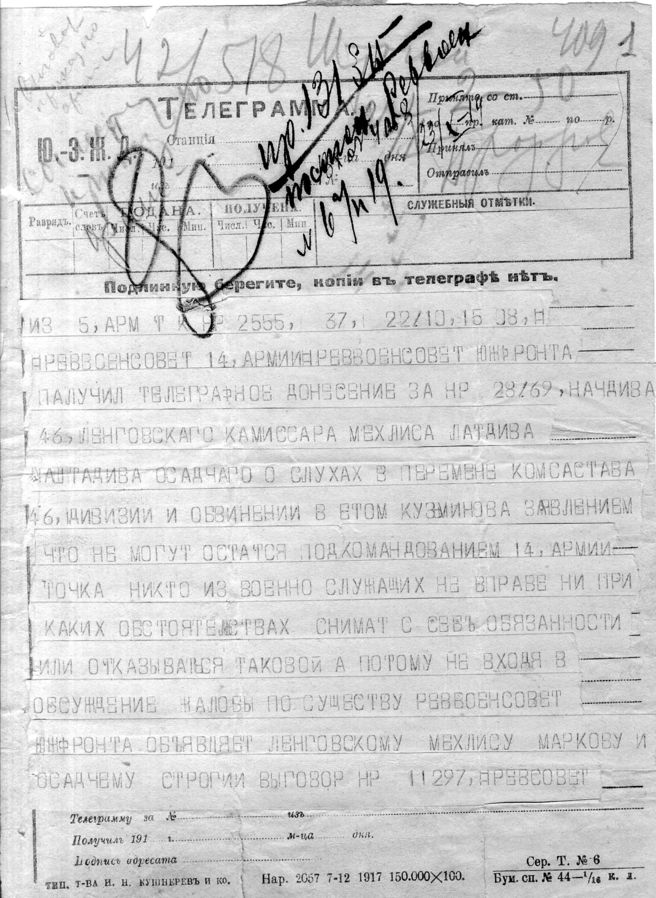 42/518
409 1
ТЕЛЕГРАММА.
пр. 131
Принята со ст.
Ю.-З. Ж. Д.
Станція
пр. кат. № по р.
дня
Принялъ
Отправилъ
№ 67/п 19.
Разрядъ.
Счетъ словъ.
ПОДАНА.
Числ. Час. Мин.
ПОЛУЧЕНА.
Числ. Час. Мин
СЛУЖЕБНЫЯ ОТМѢТКИ.
Подлинную берегите, копіи въ телеграфѣ нѣтъ.
ИЗ 5, АРМ Т К НР 2555, 37, 22/10, 15 08, Н
АРЕВВОЕНСОВЕТ 14, АРМИИ АРЕВВОЕНСОВЕТ ЮЖФРОНТА
ПАЛУЧИЛ ТЕЛЕГРАФНОЕ ДОНЕСЕНИЕ ЗА НР 28/69, НАЧДИВА
46, ЛЕНГОВСКАГО КАМИССАРА МЕХЛИСА ЛАТДИВА
НАШТАДИВА ОСАДЧАГО О СЛУХАХ В ПЕРЕМЕНЕ КОМСАСТАВА
46, ДИВИЗИИ И ОБВИНЕНИИ В ЕТОМ КУЗМИНОВА ЗАЯВЛЕНИЕМ
ЧТО НЕ МОГУТ ОСТАТСЯ ПОДКОМАНДОВАНИЕМ 14, АРМИИ
ТОЧКА НИКТО ИЗ ВОЕННО СЛУЖАЩИХ НЕ ВПРАВЕ НИ ПРИ
КАКИХ ОБСТОЯТЕЛЬСТВАХ СНИМАТ С СЕБЪ ОБЯЗАННОСТИ
ИЛИ ОТКАЗЫВАТЬСЯ ТАКОВОЙ А ПОТОМУ НЕ ВХОДЯ В
ОБСУЖДЕНИЕ ЖАЛОБЫ ПО СУЩЕСТВУ РЕВВОЕНСОВЕТ
ЮЖФРОНТА ОБЪЯВЛЯЕТ ЛЕНГОВСКОМУ МЕХЛИСУ МАРКОВУ И
ОСАДЧЕМУ СТРОГИИ ВЫГОВОР НР 11297, АРЕВСОВЕТ
Телеграмму за № изъ
Получилъ 191 г. м-ца дня.
Подпись адресата
ТИП. Т-ВА И. Н. КУШНЕРЕВЪ И КО.
Нар. 2057 7-12 1917 150.000×100.
Сер. Т. № 6
Бум. сп. № 44—1/16 к. л.